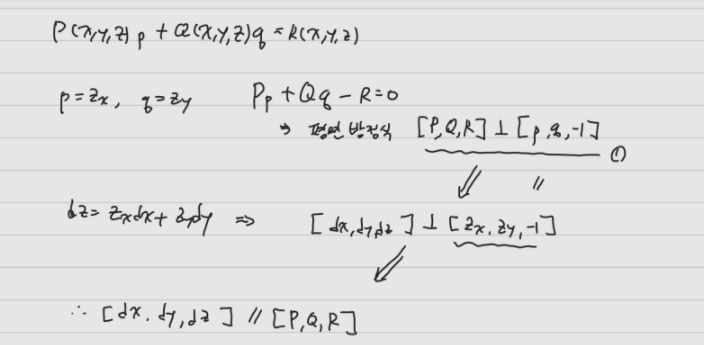 P(x,y,z)p + Q(x,y,z)q = R(x,y,z)
p=zx, q=zy Pp + Qq - R=0
→ 평면 방정식 [P,Q,R] ⊥ [p,q,-1] ①
⇙ 〃
dz= zxdx+ zydy ⇒ [dx,dy,dz] ⊥ [zx, zy, -1]
⇙
∴ [dx, dy, dz] // [P,Q,R]